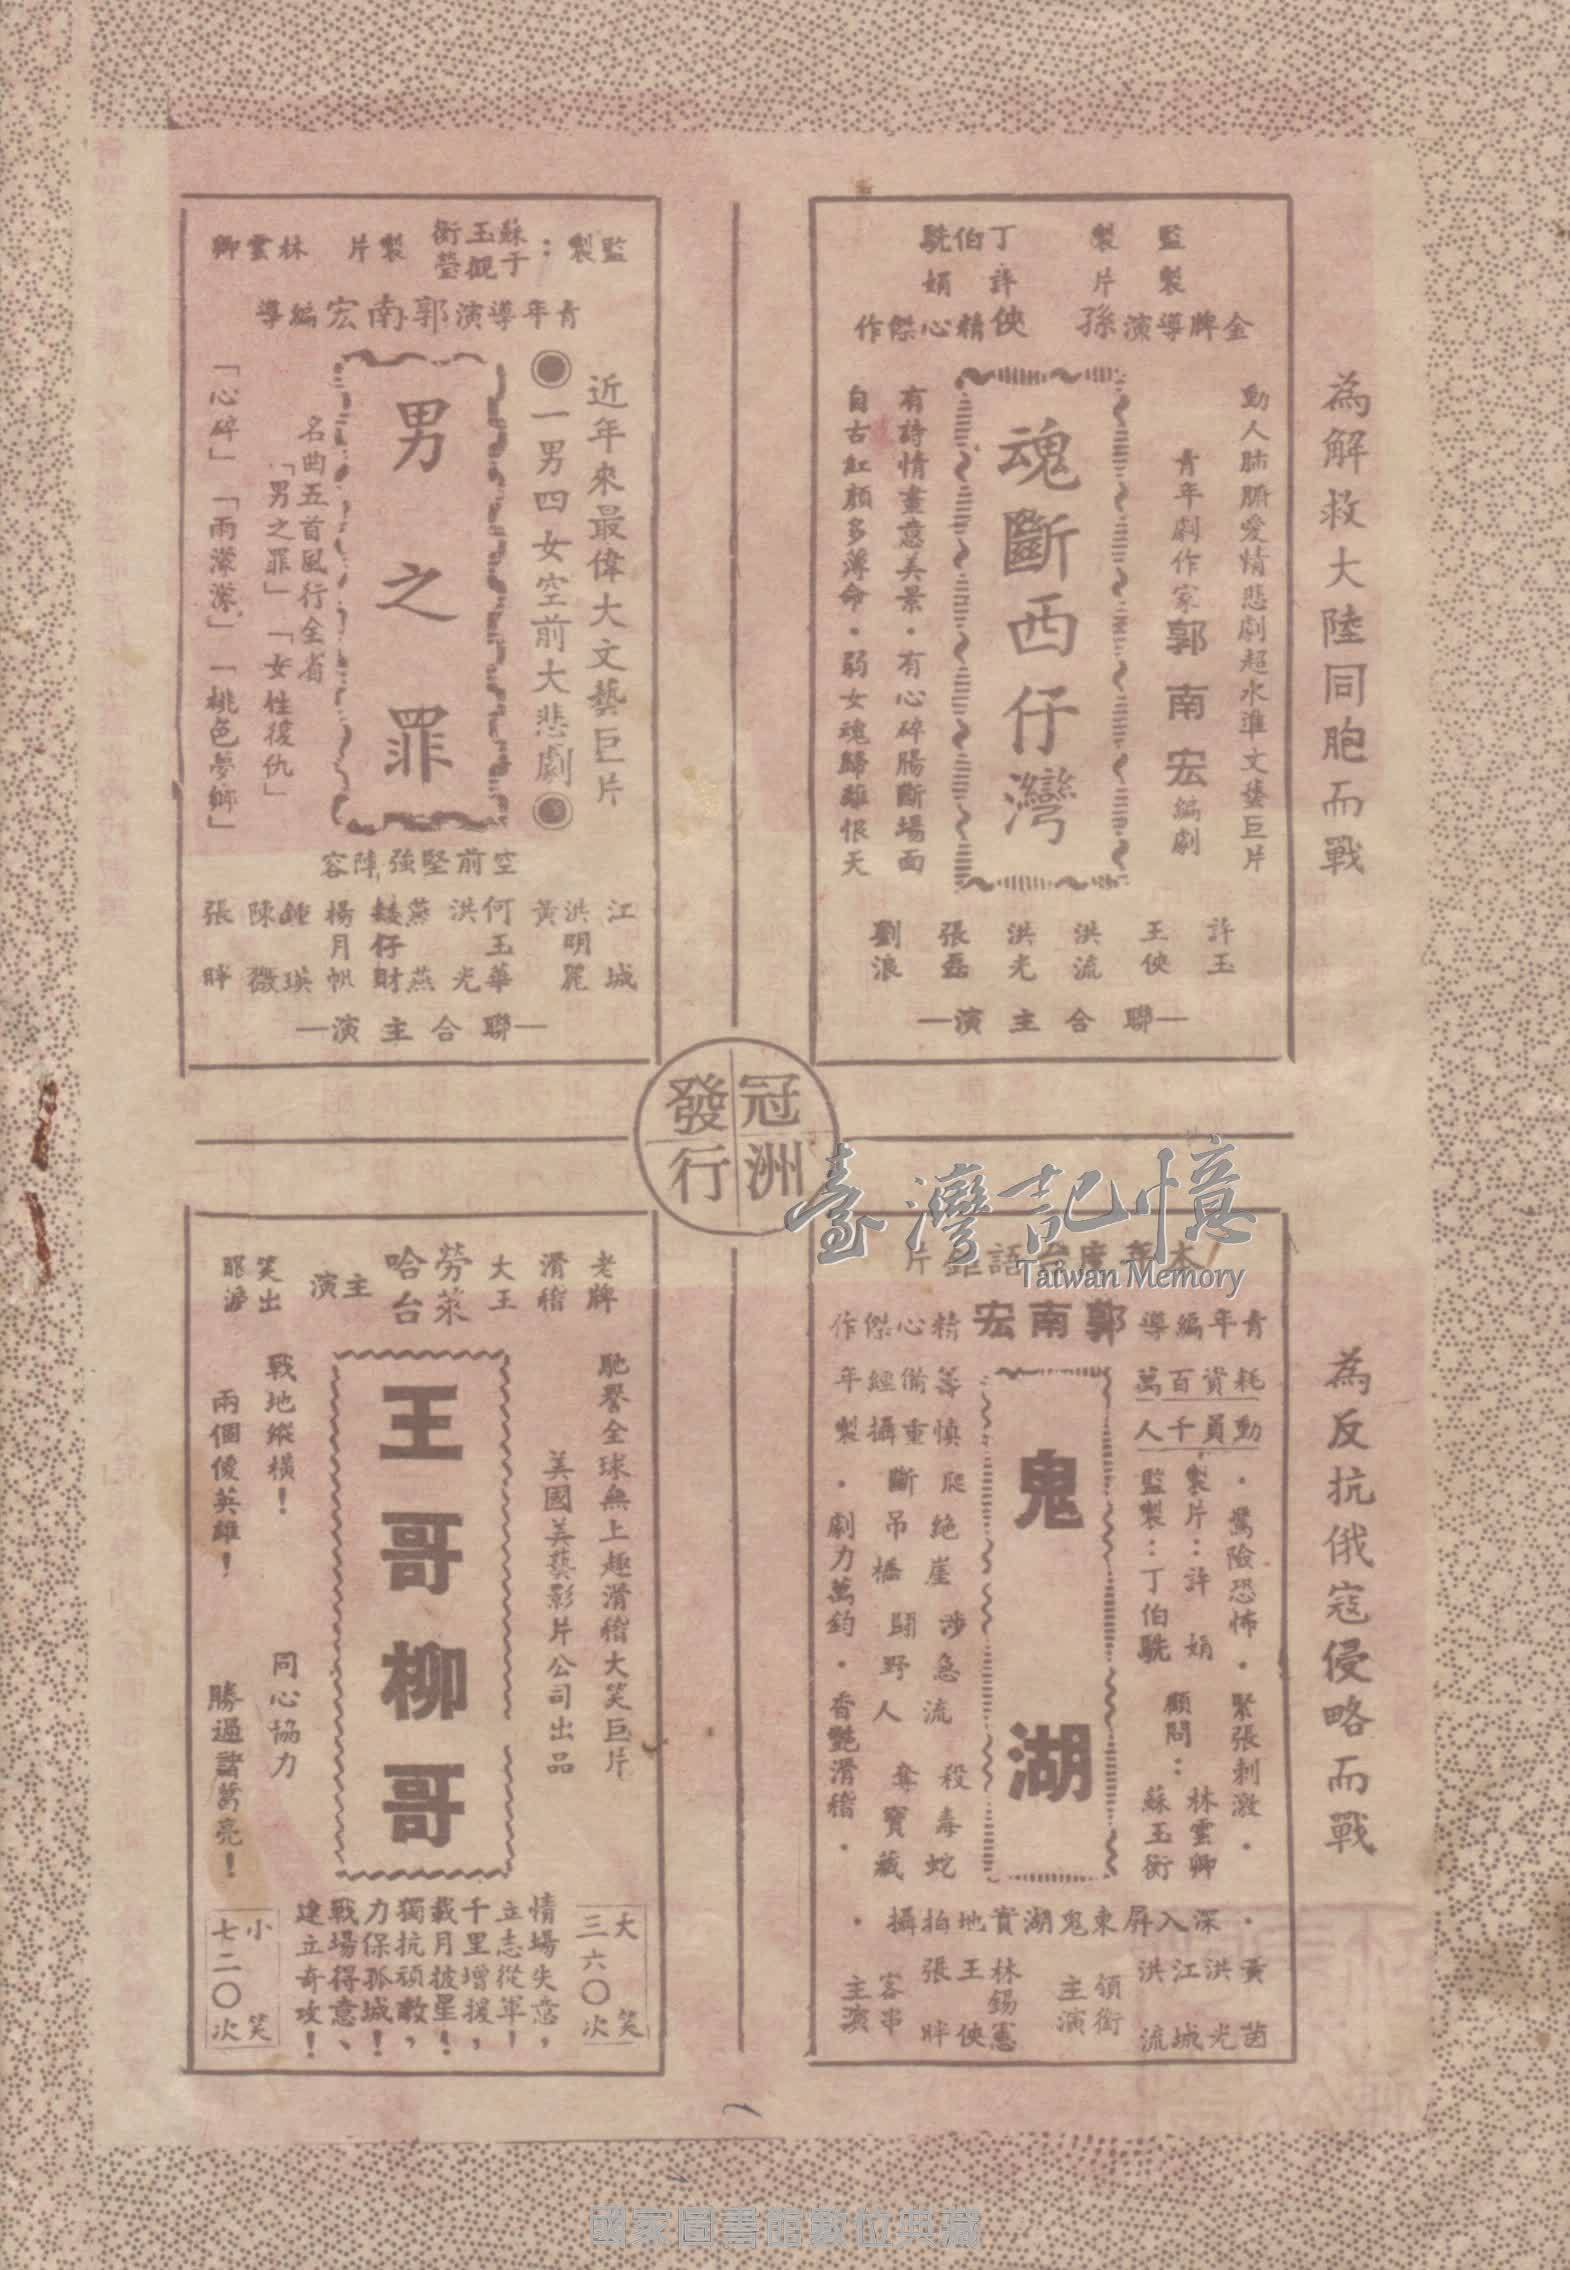 為解救大陸同胞而戰
為反抗俄寇侵略而戰
監製 丁伯駪
製片 許娟
金牌導演孫俠精心傑作
動人肺腑愛情悲劇超水準文藝巨片
青年劇作家郭南宏編劇
魂斷西仔灣
有詩情畫意美景·有心碎腸斷場面
自古紅顏多薄命·弱女魂歸離恨天
許玉
王俠
洪流
洪光
張磊
劉浪
—聯合主演—
監製：蘇玉衡 于觀瑩 製片 林雲卿
青年導演郭南宏編導
近年來最偉大文藝巨片
◉一男四女空前大悲劇◉
男之罪
名曲五首風行全省
「男之罪」「女性復仇」
「心碎」「雨濛濛」「桃色夢鄉」
空前堅強陣容
江城
洪明麗
黃
何玉華
洪光
燕燕
矮仔財
楊月帆
鍾瑛
陳薇
張胖
—聯合主演—
冠洲發行
本年度台語鉅片
青年編導郭南宏精心傑作
耗資百萬
動員千人
籌備經年
慎重攝製
·驚險恐怖·緊張刺激·
製片：許娟
監製：丁伯駪
顧問：林雲卿
蘇玉衡
鬼湖
爬絕崖 涉急流 殺毒蛇
斷吊橋 鬪野人 奪寶藏
·劇力萬鈞·香艷滑稽·
·深入屏東鬼湖實地拍攝·
黃茵
洪光
江城
洪流
領銜主演
林錫憲
王俠
張胖
客串主演
老牌滑稽大王
勞萊
哈台
主演
笑出眼淚
馳譽全球無上趣滑稽大笑巨片
美國美藝影片公司出品
王哥柳哥
戰地縱橫！ 同心協力
兩個傻英雄！ 勝過諸葛亮！
大笑三六〇次
情場失意，
立志從軍！
千里增援，
載月披星！
獨抗頑敵，
力保孤城！
戰場得意、
建立奇攻！
小笑七二〇次
臺灣記憶
Taiwan Memory
國家圖書館數位典藏